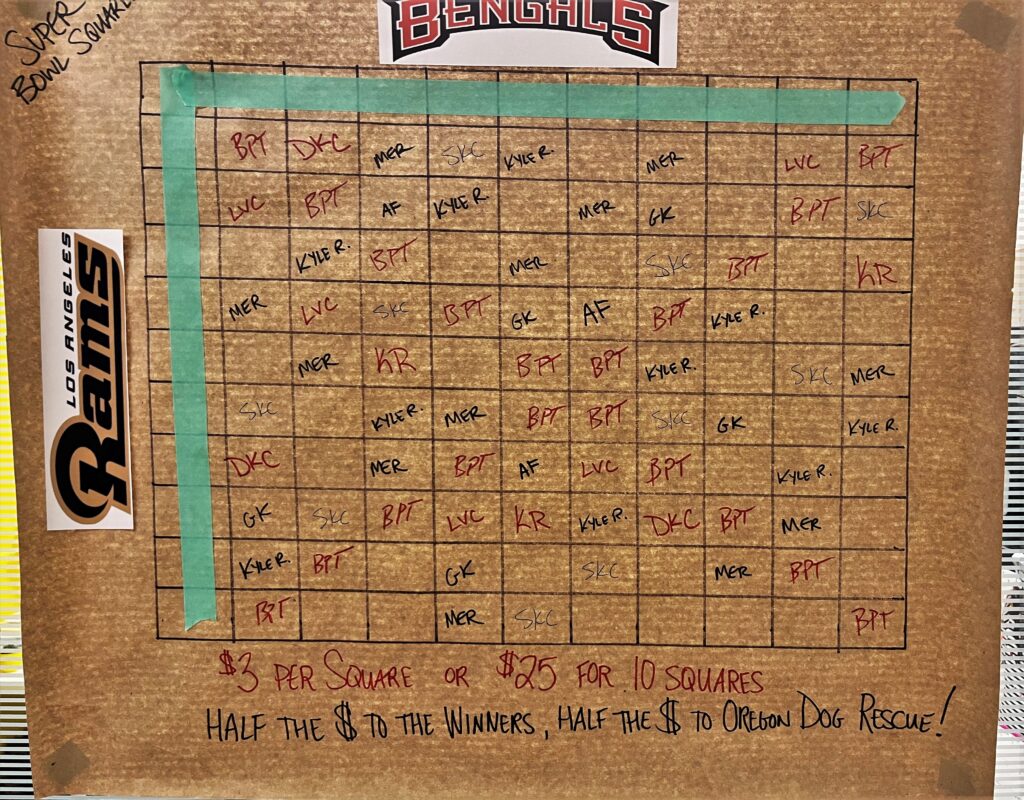 SUPER
BOWL SQUARE
BENGALS
LOS ANGELES
Rams
BPT DKC MER SKC KYLE R. MER LVC BPT
LVC BPT AF KYLE R. MER GK BPT SKC
KYLE R. BPT MER SKC BPT KR
MER LVC SKC BPT GK AF BPT KYLE R.
MER KR BPT BPT KYLE R. SKC MER
SKC KYLE R. MER BPT BPT SKC GK KYLE R.
DKC MER BPT AF LVC BPT KYLE R.
GK SKC BPT LVC KR KYLE R. DKC BPT MER
KYLE R. BPT GK SKC MER BPT
BPT MER SKC BPT
$3 PER SQUARE OR $25 FOR 10 SQUARES
HALF THE $ TO THE WINNERS, HALF THE $ TO OREGON DOG RESCUE!